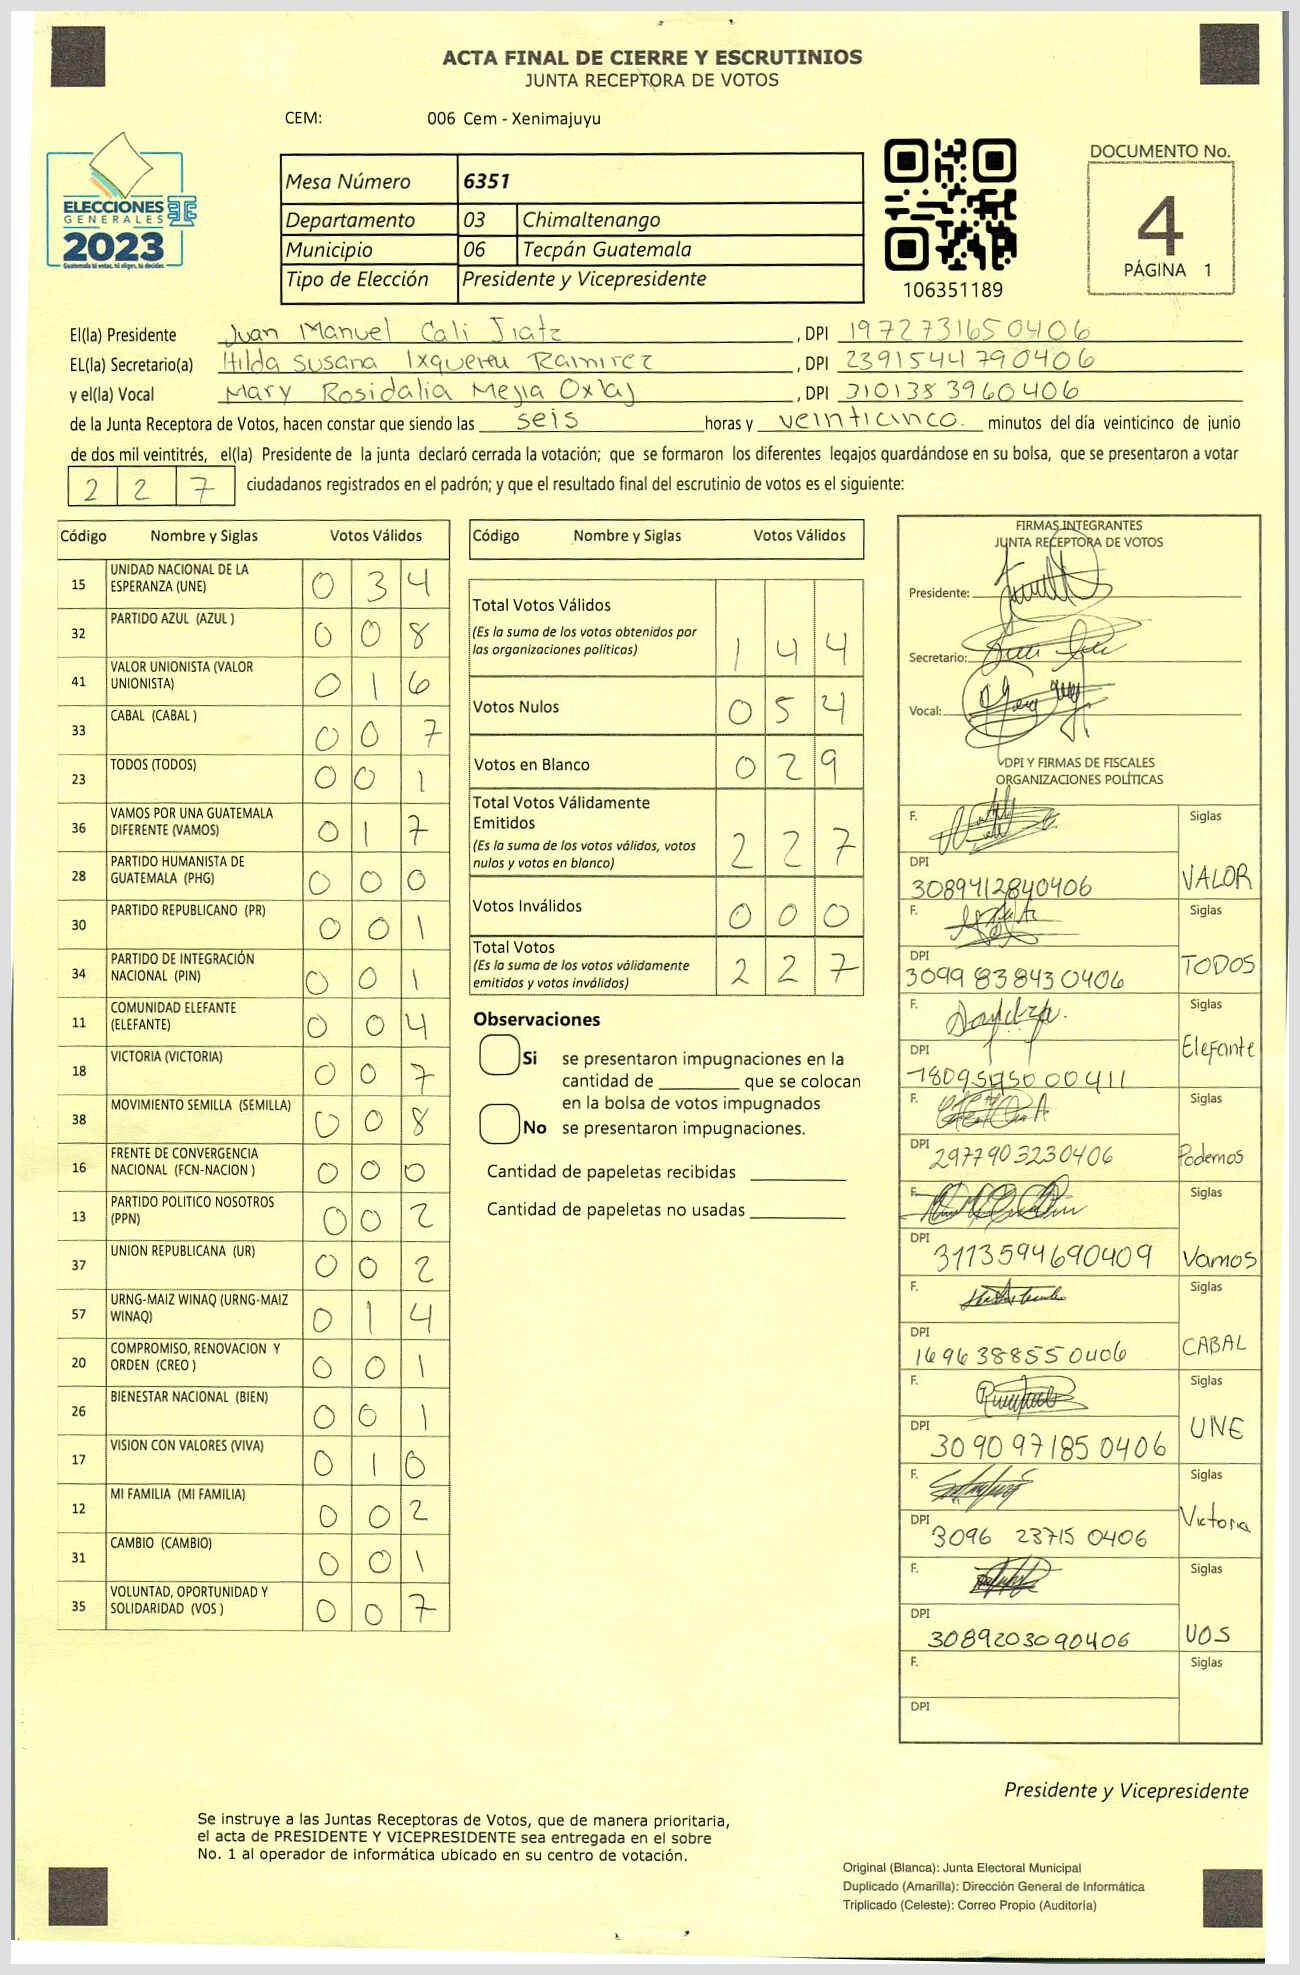 ACTA FINAL DE CIERRE Y ESCRUTINIOS
JUNTA RECEPTORA DE VOTOS
CEM: 006 Cem - Xenimajuyu
ELECCIONES
GENERALES
2023
Guatemala tú votas, tú eliges, tú decides
Mesa Número 6351
Departamento 03 Chimaltenango
Municipio 06 Tecpán Guatemala
Tipo de Elección Presidente y Vicepresidente
106351189
DOCUMENTO No.
4
PÁGINA 1
El(la) Presidente Juan Manuel Cali Jiatz , DPI 1972731650406
EL(la) Secretario(a) Hilda Susana Ixquereu Ramirez , DPI 2391544790406
y el(la) Vocal Mary Rosidalia Mejia Oxlaj , DPI 3101383960406
de la Junta Receptora de Votos, hacen constar que siendo las seis horas y veinticinco. minutos del día veinticinco de junio
de dos mil veintitrés, el(la) Presidente de la junta declaró cerrada la votación; que se formaron los diferentes legajos quardándose en su bolsa, que se presentaron a votar
2 2 7 ciudadanos registrados en el padrón; y que el resultado final del escrutinio de votos es el siguiente:
Código Nombre y Siglas Votos Válidos
15 UNIDAD NACIONAL DE LA ESPERANZA (UNE) 0 3 4
32 PARTIDO AZUL (AZUL ) 0 0 8
41 VALOR UNIONISTA (VALOR UNIONISTA) 0 1 6
33 CABAL (CABAL ) 0 0 7
23 TODOS (TODOS) 0 0 1
36 VAMOS POR UNA GUATEMALA DIFERENTE (VAMOS) 0 1 7
28 PARTIDO HUMANISTA DE GUATEMALA (PHG) 0 0 0
30 PARTIDO REPUBLICANO (PR) 0 0 1
34 PARTIDO DE INTEGRACIÓN NACIONAL (PIN) 0 0 1
11 COMUNIDAD ELEFANTE (ELEFANTE) 0 0 4
18 VICTORIA (VICTORIA) 0 0 7
38 MOVIMIENTO SEMILLA (SEMILLA) 0 0 8
16 FRENTE DE CONVERGENCIA NACIONAL (FCN-NACION ) 0 0 0
13 PARTIDO POLITICO NOSOTROS (PPN) 0 0 2
37 UNION REPUBLICANA (UR) 0 0 2
57 URNG-MAIZ WINAQ (URNG-MAIZ WINAQ) 0 1 4
20 COMPROMISO, RENOVACION Y ORDEN (CREO ) 0 0 1
26 BIENESTAR NACIONAL (BIEN) 0 0 1
17 VISION CON VALORES (VIVA) 0 1 0
12 MI FAMILIA (MI FAMILIA) 0 0 2
31 CAMBIO (CAMBIO) 0 0 1
35 VOLUNTAD, OPORTUNIDAD Y SOLIDARIDAD (VOS ) 0 0 7
Código Nombre y Siglas Votos Válidos
Total Votos Válidos
(Es la suma de los votos obtenidos por
las organizaciones políticas) 1 4 4
Votos Nulos 0 5 4
Votos en Blanco 0 2 9
Total Votos Válidamente
Emitidos
(Es la suma de los votos válidos, votos
nulos y votos en blanco) 2 2 7
Votos Inválidos 0 0 0
Total Votos
(Es la suma de los votos válidamente
emitidos y votos inválidos) 2 2 7
Observaciones
Si se presentaron impugnaciones en la
cantidad de ________ que se colocan
en la bolsa de votos impugnados
No se presentaron impugnaciones.
Cantidad de papeletas recibidas
Cantidad de papeletas no usadas
FIRMAS INTEGRANTES
JUNTA RECEPTORA DE VOTOS
Presidente:
Secretario:
Vocal:
DPI Y FIRMAS DE FISCALES
ORGANIZACIONES POLÍTICAS
F. Siglas
DPI 3089412840406 VALOR
F. Siglas
DPI 3099838430406 TODOS
F. Siglas
DPI Elefante
F. Siglas
DPI 2977903230406 Podemos
F. Siglas
DPI 3113594690409 Vamos
F. Siglas
DPI 1696388550406 CABAL
F. Siglas
DPI 3090971850406 UNE
F. Siglas
DPI 3096 23715 0406 Victoria
F. Siglas
DPI 3089203090406 VOS
F. Siglas
DPI
Presidente y Vicepresidente
Se instruye a las Juntas Receptoras de Votos, que de manera prioritaria,
el acta de PRESIDENTE Y VICEPRESIDENTE sea entregada en el sobre
No. 1 al operador de informática ubicado en su centro de votación.
Original (Blanca): Junta Electoral Municipal
Duplicado (Amarilla): Dirección General de Informática
Triplicado (Celeste): Correo Propio (Auditoría)